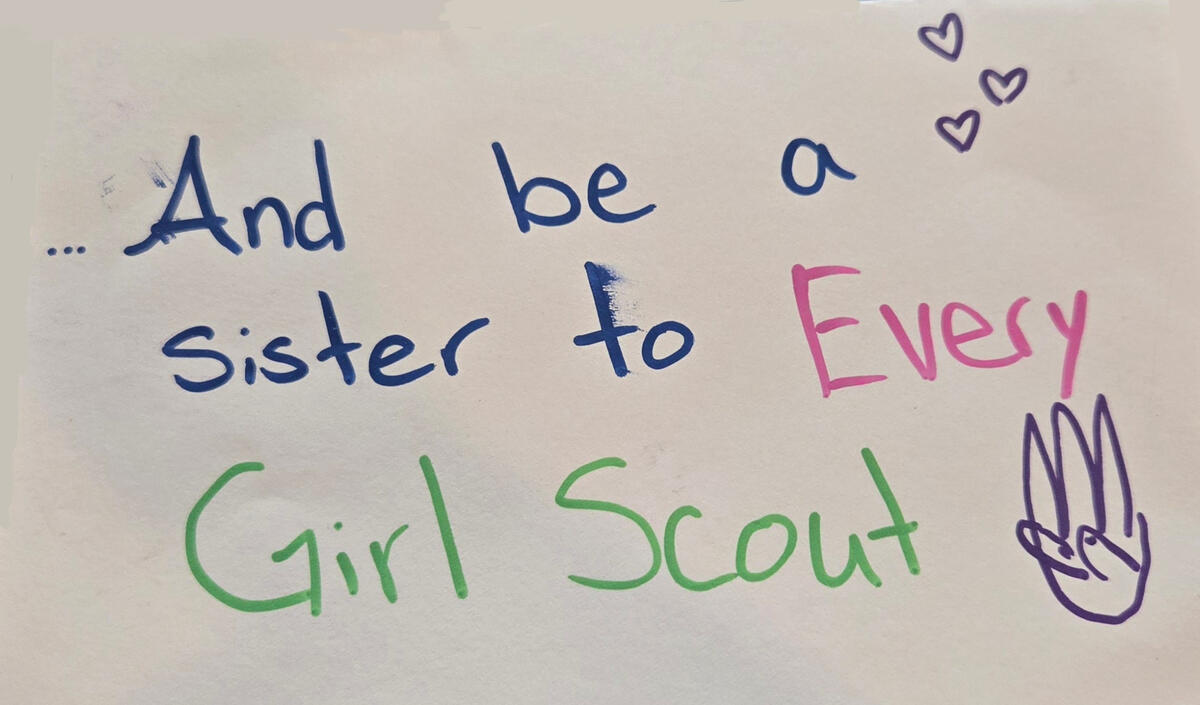 ... And be a
sister to Every
Girl Scout